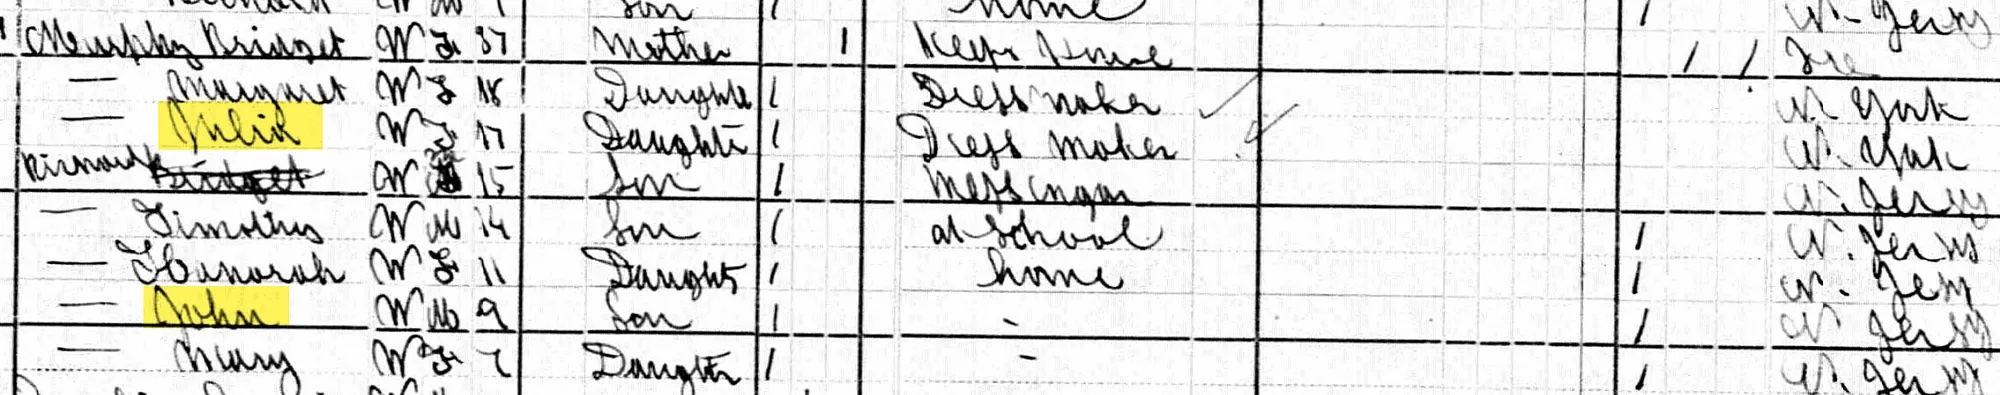 Son / home / N. Jersy
Murphy Bridget W F 37 Mother 1 Keeps House / / Ire
— Margaret W F 18 Daughte / Dress maker N. York
— Julia W F 17 Daughte / Dress Maker N. York
W 15 Son 1 Messengar N. Jersy
— Timothy W M 14 Son / at School / N. Jersy
— Hanorah W F 11 Daught / home / N. Jersy
— John W M 9 Son / - / N. Jersy
— Mary W F Daughter / - / N. Jersy